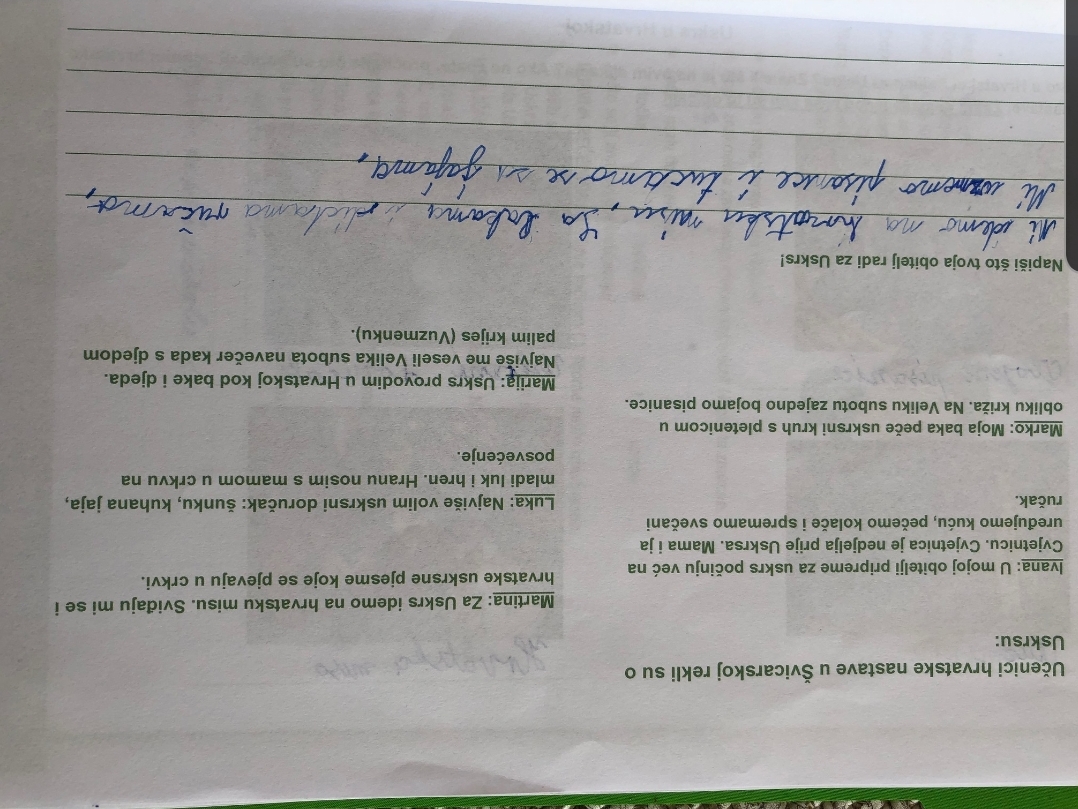 Učenici hrvatske nastave u Švicarskoj rekli su o
Uskrsu:
Ivana: U mojoj obitelji pripreme za uskrs počinju već na
Cvjetnicu. Cvjetnica je nedjelja prije Uskrsa. Mama i ja
uređujemo kuću, pečemo kolače i spremamo svečani
ručak.
Marko: Moja baka peče uskrsni kruh s pletenicom u
obliku križa. Na Veliku subotu zajedno bojamo pisanice.
Martina: Za Uskrs idemo na hrvatsku misu. Sviđaju mi se i
hrvatske uskrsne pjesme koje se pjevaju u crkvi.
Luka: Najviše volim uskrsni doručak: šunku, kuhana jaja,
mladi luk i hren. Hranu nosim s mamom u crkvu na
posvećenje.
Marija: Uskrs provodim u Hrvatskoj kod bake i djeda.
Najviše me veseli Velika subota navečer kada s djedom
palim krijes (Vuzmenku).
Napiši što tvoja obitelj radi za Uskrs!
Mi idemo na hrvatsku misu, Sa bakama i didama ručamo,
Mi uzmemo pisanice i tucamo se sa jajama,